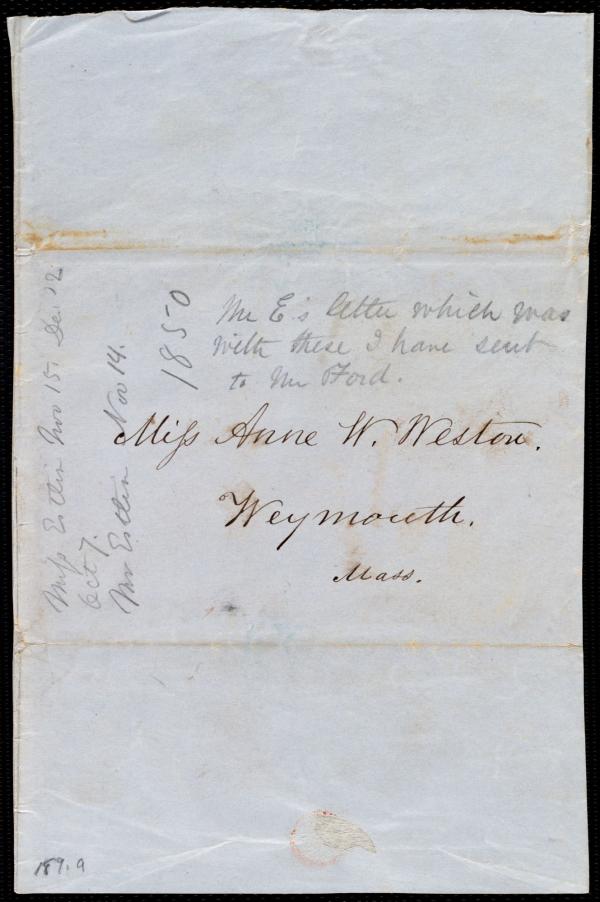 Mr E's letter which was
with these I have sent
to Mr Ford.
Miss Anne W. Weston.
Weymouth.
Mass.
Miss Estlin Nov 15. Dec. 12
Oct 7.
Mr Estlin Nov 14.
1850